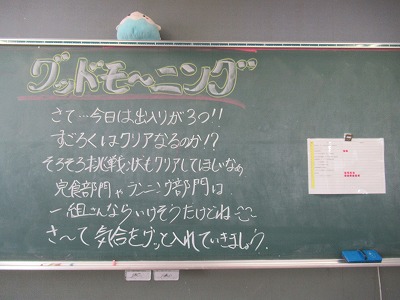 グッドモ〜ニング
さて…今日は出入りが3つ!!
すごろくはクリアなるのか!?
そろそろ挑戦状もクリアしてほしいなぁ
完食部門やランニング部門は
一組さんならいけそうだけどね
さ〜て 気合をグッと入れていきましょう。